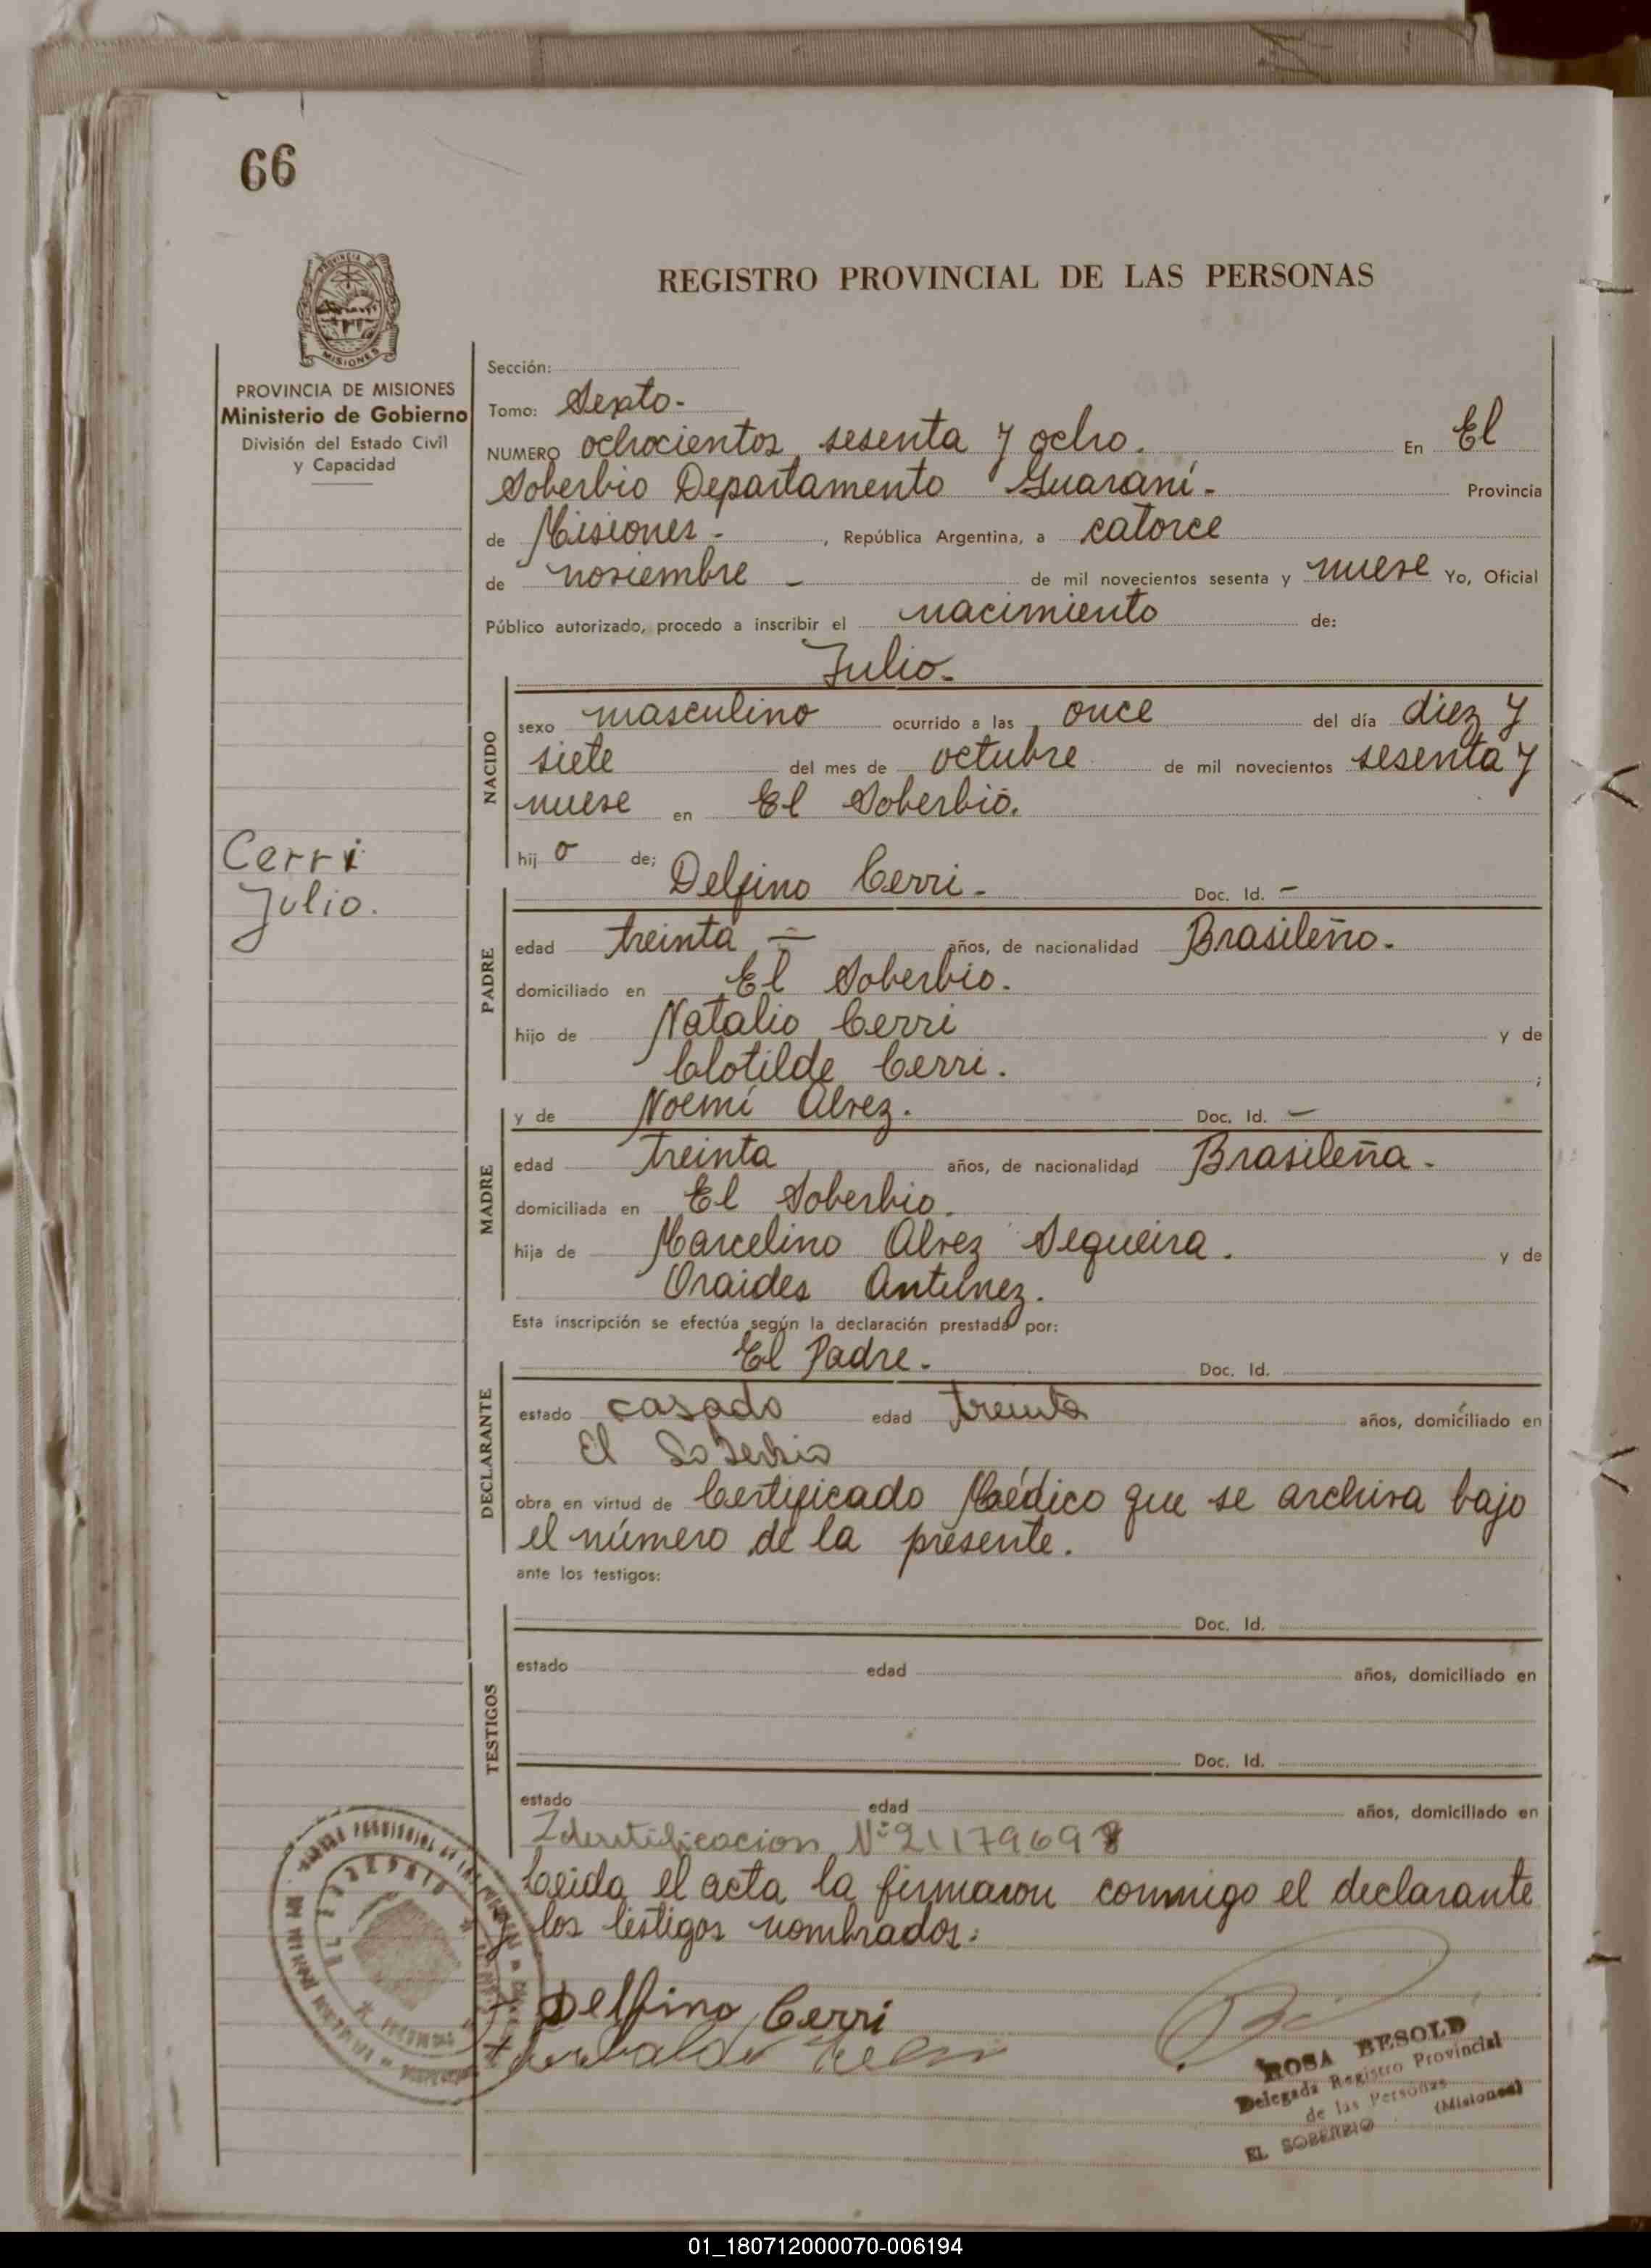 66
REGISTRO PROVINCIAL DE LAS PERSONAS
PROVINCIA DE MISIONES
Ministerio de Gobierno
División del Estado Civil
y Capacidad
Cerri
Julio.
Sección:
Tomo: Sexto-
NUMERO ochocientos sesenta y ocho. En El
Soberbio Departamento Guaraní- Provincia
de Misiones-, República Argentina, a catorce
de noviembre - de mil novecientos sesenta y nueve Yo, Oficial
Público autorizado, procedo a inscribir el nacimiento de:
Julio-
NACIDO
sexo masculino ocurrido a las once del día diez y
siete del mes de octubre de mil novecientos sesenta y
nueve en El Soberbio.
hij o de;
Delfino Cerri- Doc. Id. -
PADRE
edad treinta años, de nacionalidad Brasileño-
domiciliado en El Soberbio.
hijo de Natalio Cerri y de
Clotilde Cerri. ;
y de Noemí Alvez. Doc. Id. -
MADRE
edad treinta años, de nacionalidad Brasileña-
domiciliada en El Soberbio.
hija de Marcelino Alvez Sequeira. y de
Oraides Antunez.
Esta inscripción se efectúa según la declaración prestada por:
El Padre- Doc. Id.
DECLARANTE
estado casado edad treinta años, domiciliado en
El Soberbio
obra en virtud de Certificado Médico que se archiva bajo
el número de la presente.
ante los testigos:
Doc. Id.
TESTIGOS
estado edad años, domiciliado en
Doc. Id.
estado edad años, domiciliado en
Identificacion Nº
Leida el acta la firmaron conmigo el declarante
y los testigos nombrados:
Delfino Cerri
ROSA BESOLD
Delegada Registro Provincial
de las Personas
EL SOBERBIO (Misiones)
01_180712000070-006194